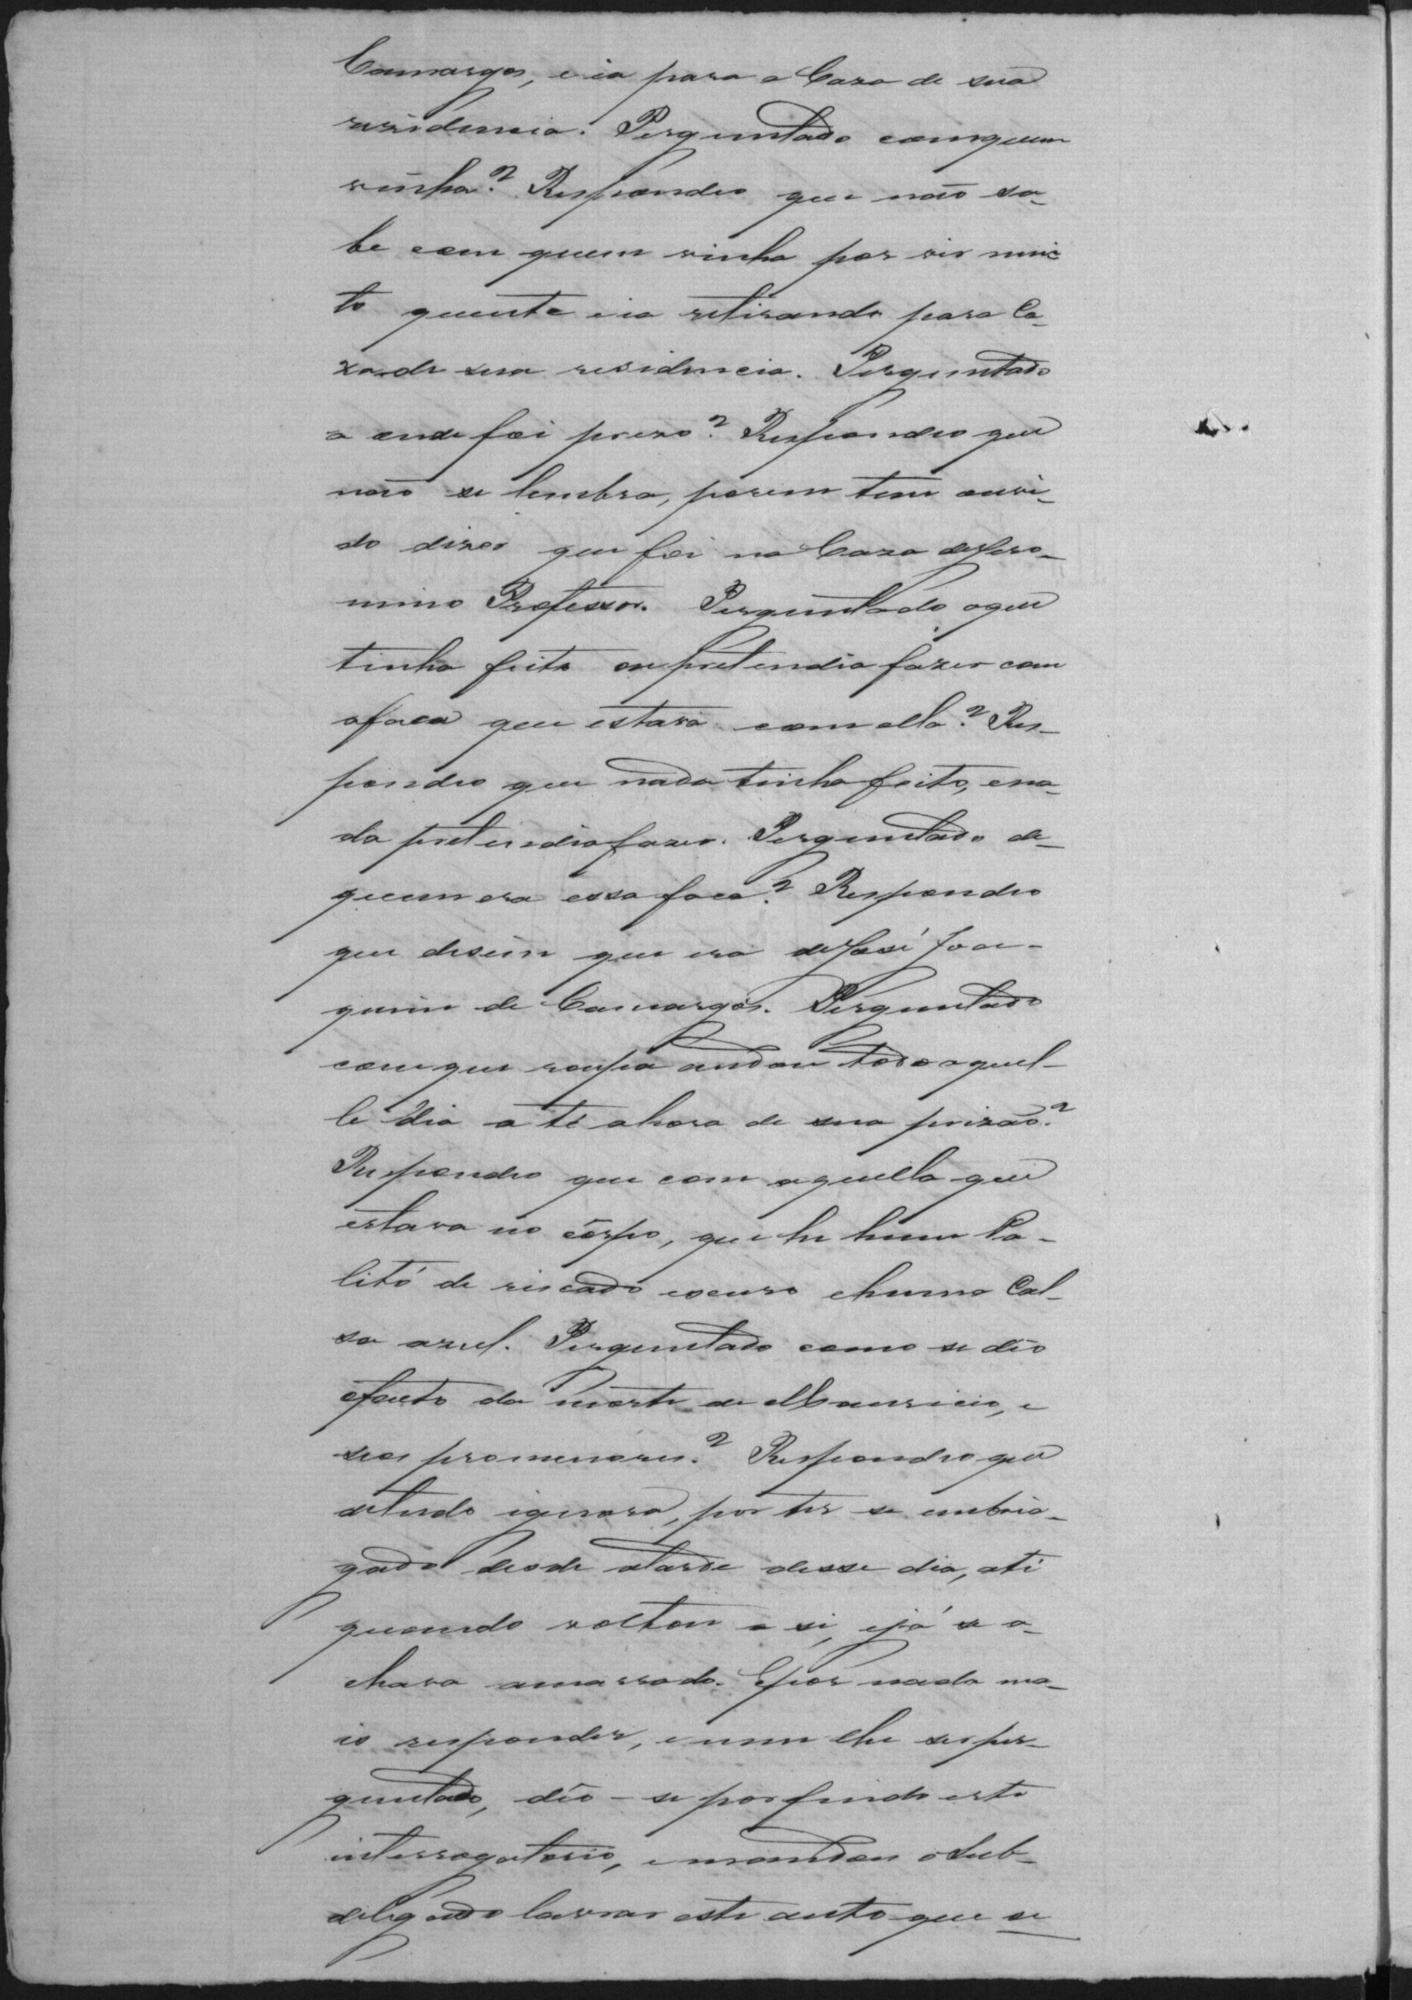 Camargos, e ia para a Caza de sua
residencia. Perguntado com quem
vinha? Respondeo que não sa-
be com quem vinha por vir mui-
to quente e ia retirando para Ca-
za de sua residencia. Perguntado
a onde foi prezo? Respondeo que
não se lembra, porem tem ouvi-
do dizer que foi na Caza de Jero-
nimo Professor. Perguntado o que
tinha feito ou pretendia fazer com
a faca que estava com ella? Res-
pondeo que nada tinha feito, e na-
da pretendia fazer. Perguntado de
quem era essa faca? Respondeo
que disem que era de José Joa-
quim de Camargos. Perguntado
com que roupa andou todo aquel-
le dia até a hora de sua prizão?
Respondeo que com aquella que
estava no côrpo, que he hum Pa-
litó de riscado escuro e huma Cal-
sa azul. Perguntado como se dêo
o facto da morte de Mauricio, e
seos promenores? Respondeo que
de tudo ignora, por ter se embria-
gado desde a tarde desse dia, até
quando voltou a si, e já se a-
chava amarrado. E por nada ma-
is responder, e nem lhe ser per-
guntado, dêo-se por findo este
interrogatorio, e mandou o Sub-
delegado lavrar este auto que se